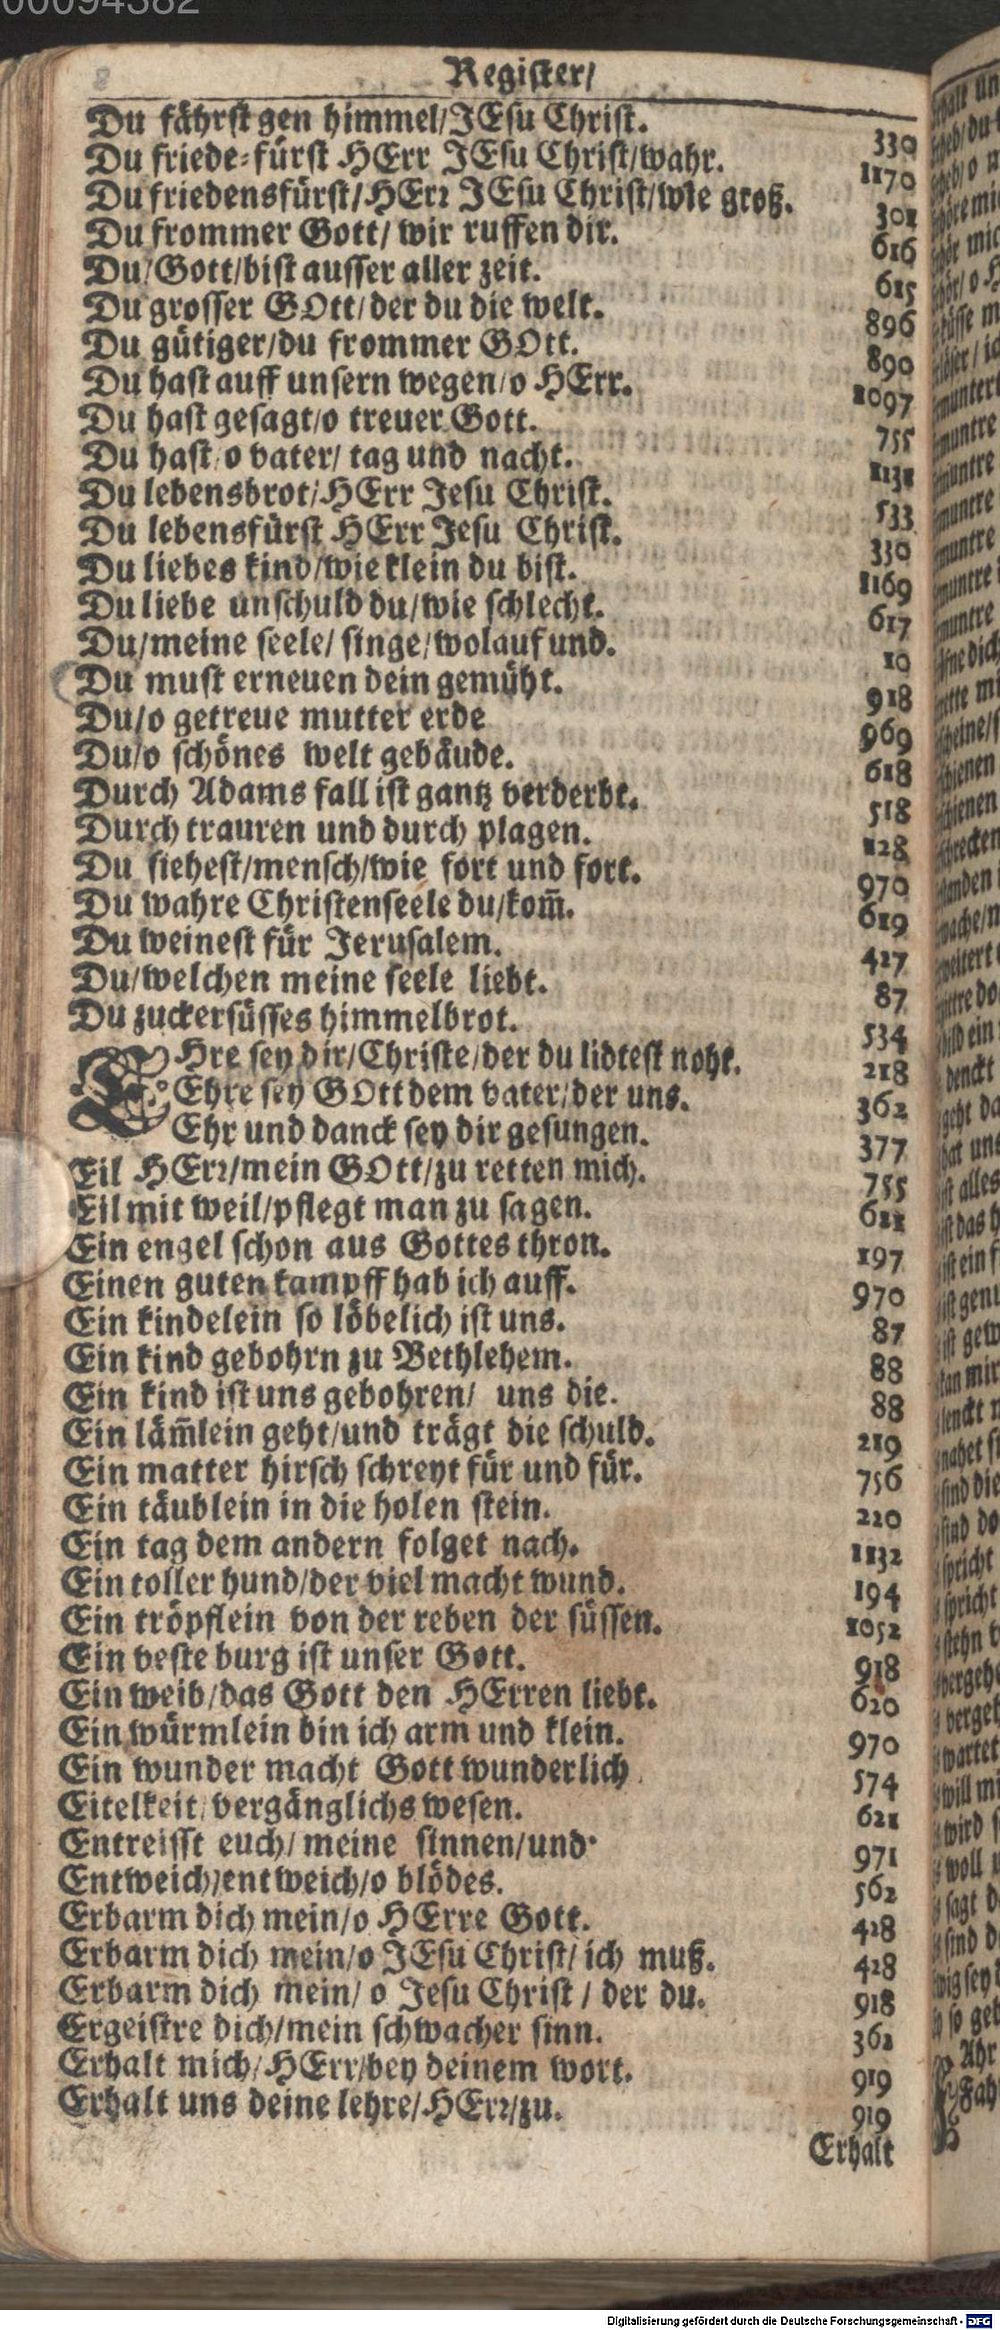 00094382
Register/
Du fährst gen himmel/JEsu Christ. 330
Du friede-fürst HErr JEsu Christ/wahr. 1170
Du friedensfürst/HErr JEsu Christ/wie groß. 301
Du frommer Gott/ wir ruffen dir. 616
Du/Gott/bist ausser aller zeit. 615
Du grosser GOtt/der du die welt. 896
Du gütiger/du frommer GOtt. 890
Du hast auff unsern wegen/o HErr. 1097
Du hast gesagt/o treuer Gott. 755
Du hast/o vater/ tag und nacht. 1131
Du lebensbrot/HErr Jesu Christ. 533
Du lebensfürst HErr Jesu Christ. 330
Du liebes kind/wie klein du bist. 1169
Du liebe unschuld du/wie schlecht. 617
Du/meine seele/ singe/wolauf und. 10
Du must erneuen dein gemüht. 918
Du/o getreue mutter erde 969
Du/o schönes welt gebäude. 618
Durch Adams fall ist gantz verderbt. 518
Durch trauren und durch plagen. 128
Du siehest/mensch/wie fort und fort. 970
Du wahre Christenseele du/kom̃. 619
Du weinest für Jerusalem. 427
Du/welchen meine seele liebt. 87
Du zuckersüsses himmelbrot. 534
EHre sey dir/Christe/der du lidtest noht. 218
Ehre sey GOtt dem vater/der uns. 362
Ehr und danck sey dir gesungen. 377
Eil HErr/mein GOtt/zu retten mich. 755
Eil mit weil/pflegt man zu sagen. 621
Ein engel schon aus Gottes thron. 197
Einen guten kampff hab ich auff. 970
Ein kindelein so löbelich ist uns. 87
Ein kind gebohrn zu Bethlehem. 88
Ein kind ist uns gebohren/ uns die. 88
Ein läm̃lein geht/und trägt die schuld. 219
Ein matter hirsch schreyt für und für. 756
Ein täublein in die holen stein. 220
Ein tag dem andern folget nach. 1132
Ein toller hund/der viel macht wund. 194
Ein tröpflein von der reben der süssen. 1052
Ein veste burg ist unser Gott. 918
Ein weib/das Gott den HErren liebt. 620
Ein würmlein bin ich arm und klein. 970
Ein wunder macht Gott wunderlich 574
Eitelkeit/vergänglichs wesen. 621
Entreisst euch/ meine sinnen/und 971
Entweich/entweich/o blödes. 562
Erbarm dich mein/o HErre Gott. 428
Erbarm dich mein/o JEsu Christ/ ich muß. 428
Erbarm dich mein/ o Jesu Christ / der du. 918
Ergeistre dich/mein schwacher sinn. 362
Erhalt mich/HErr/bey deinem wort. 919
Erhalt uns deine lehre/HErr/zu. 919
Erhalt
Digitalisierung gefördert durch die Deutsche Forschungsgemeinschaft - DFG